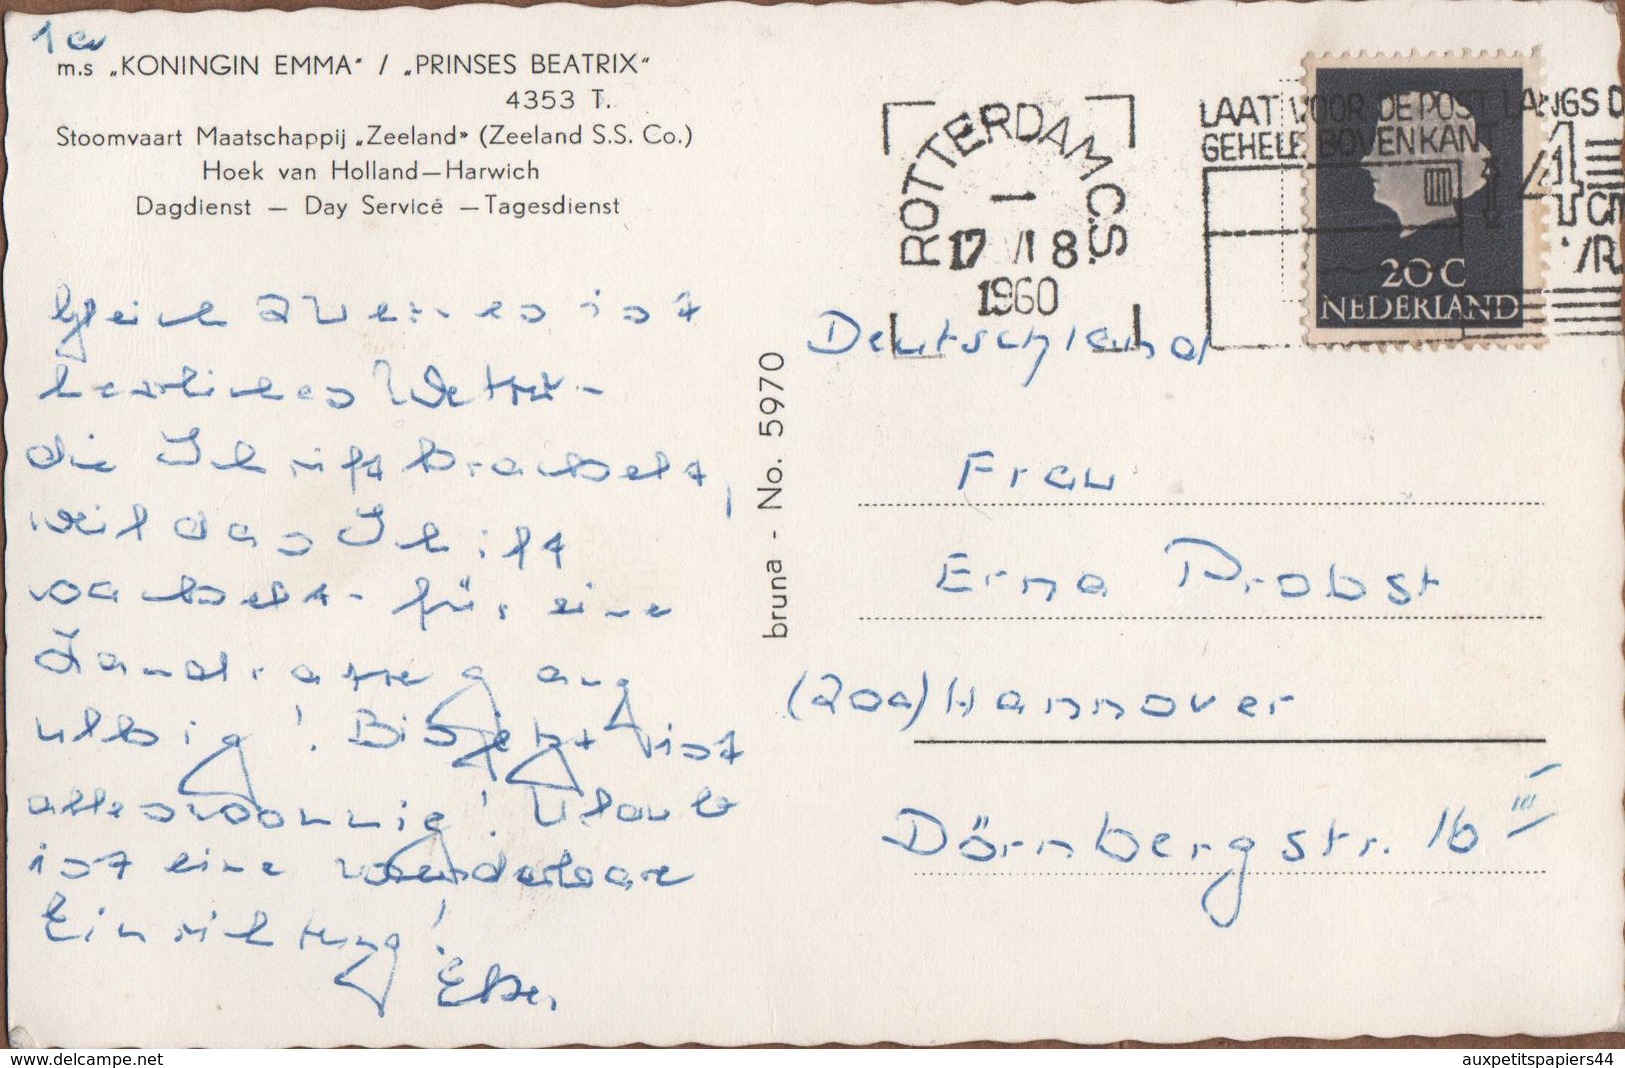 1a
m.s „KONINGIN EMMA" / „PRINSES BEATRIX"
4353 T.
Stoomvaart Maatschappij „Zeeland" (Zeeland S.S. Co.)
Hoek van Holland—Harwich
Dagdienst — Day Service — Tagesdienst
es ist
herrliches Wetter -
die Schrift wackelt,
weil das Schiff
wackelt - für eine
Landratte
ulkig! Bis jetzt ist
alles sonnig! Urlaub
ist eine wunderbare
Einrichtung!
bruna - No. 5970
ROTTERDAM C.S.
17 VI 8
1960
LAAT VOOR DE POST LANGS D
GEHELE BOVENKANT
4
CM
VR
20C
NEDERLAND
Deutschland
Frau
Erna Probst
(20a) Hannover
Dörnbergstr. 16 III
auxpetitspapiers44